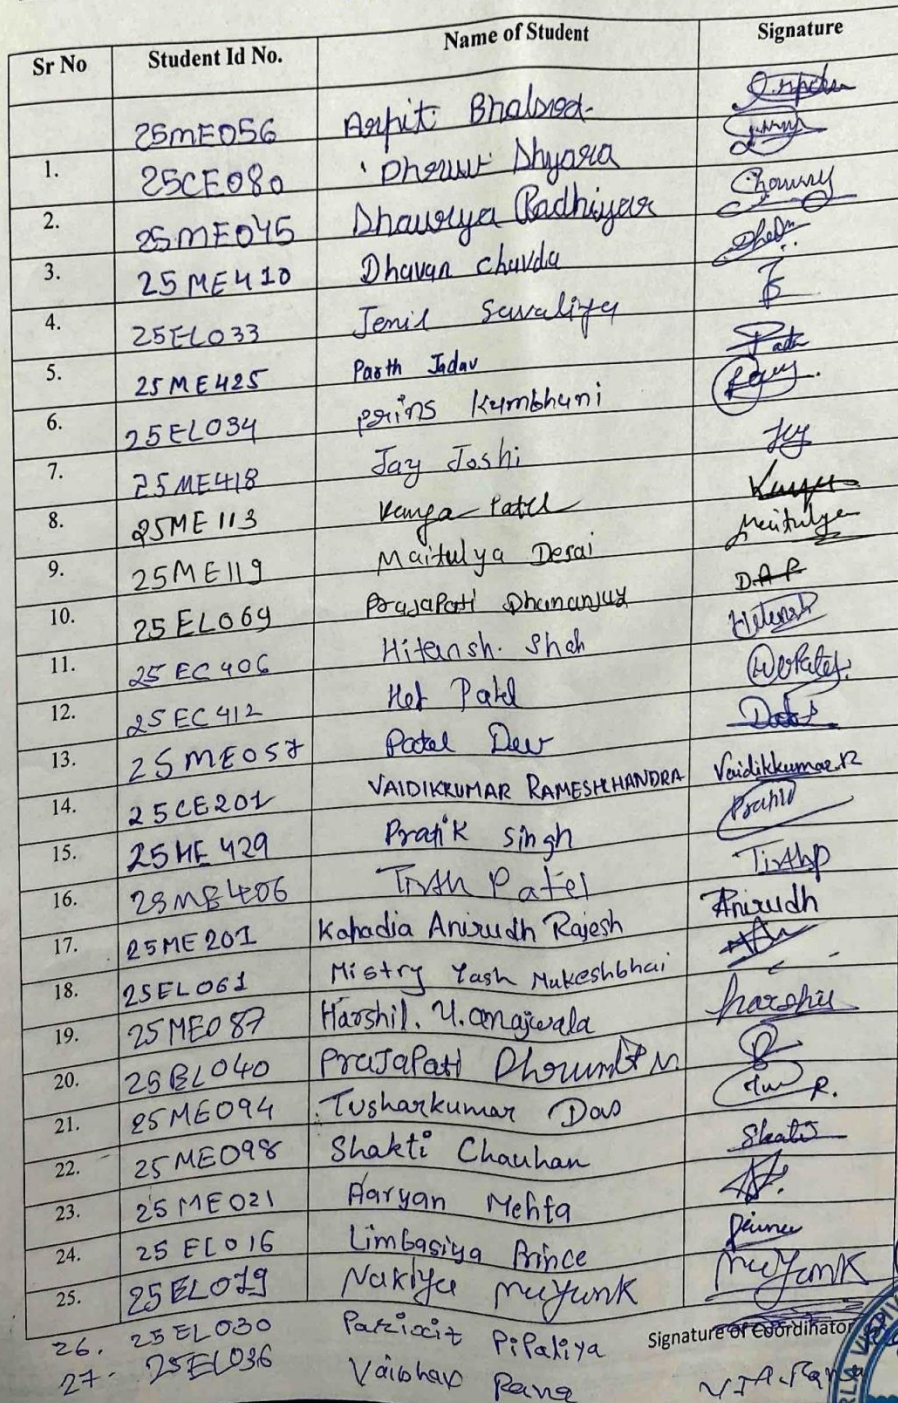 Sr No Student Id No. Name of Student Signature
25ME056 Arpit Bhalood
1. 25CE080 Dhruv Dhyara
2. 25ME045 Dhaurya Radhiyar Chourny
3. 25ME410 Dhavan Chavda
4. 25EL033 Jenil Savaliya
5. 25ME425 Parth Jadav
6. 25EL034 prins Kumbhani
7. 25ME418 Jay Joshi Jay
8. 25ME113 Kavya Patel
9. 25ME119 Maitulya Desai Maitulya
10. 25EL069 Prajapati Dhananjay D.A.P
11. 25EC406 Hitansh. Shah Hitansh
12. 25EC412 Het Patel
13. 25ME057 Patel Dev
14. 25CE201 VAIDIKKUMAR RAMESHCHANDRA Vaidikkumar.R
15. 25ME429 Pratik Singh Pratik
16. 25ME406 Tirth Patel TirthP
17. 25ME201 Kapadia Anirudh Rajesh Anirudh
18. 25EL061 Mistry Yash Mukeshbhai
19. 25ME087 Harshil. U. anajwala harshil
20. 25EL040 Prajapati M.
21. 25ME094 Tusharkumar Das R.
22. 25ME098 Shakti Chauhan Shakti
23. 25ME021 Aaryan Mehta
24. 25EL016 Limbasiya Prince
25. 25EL019 Nakiya Mayank Mayank
26. 25EL030 Parixit Pipaliya Signature of Coordinator
27. 25EL036 Vaibhav Rana